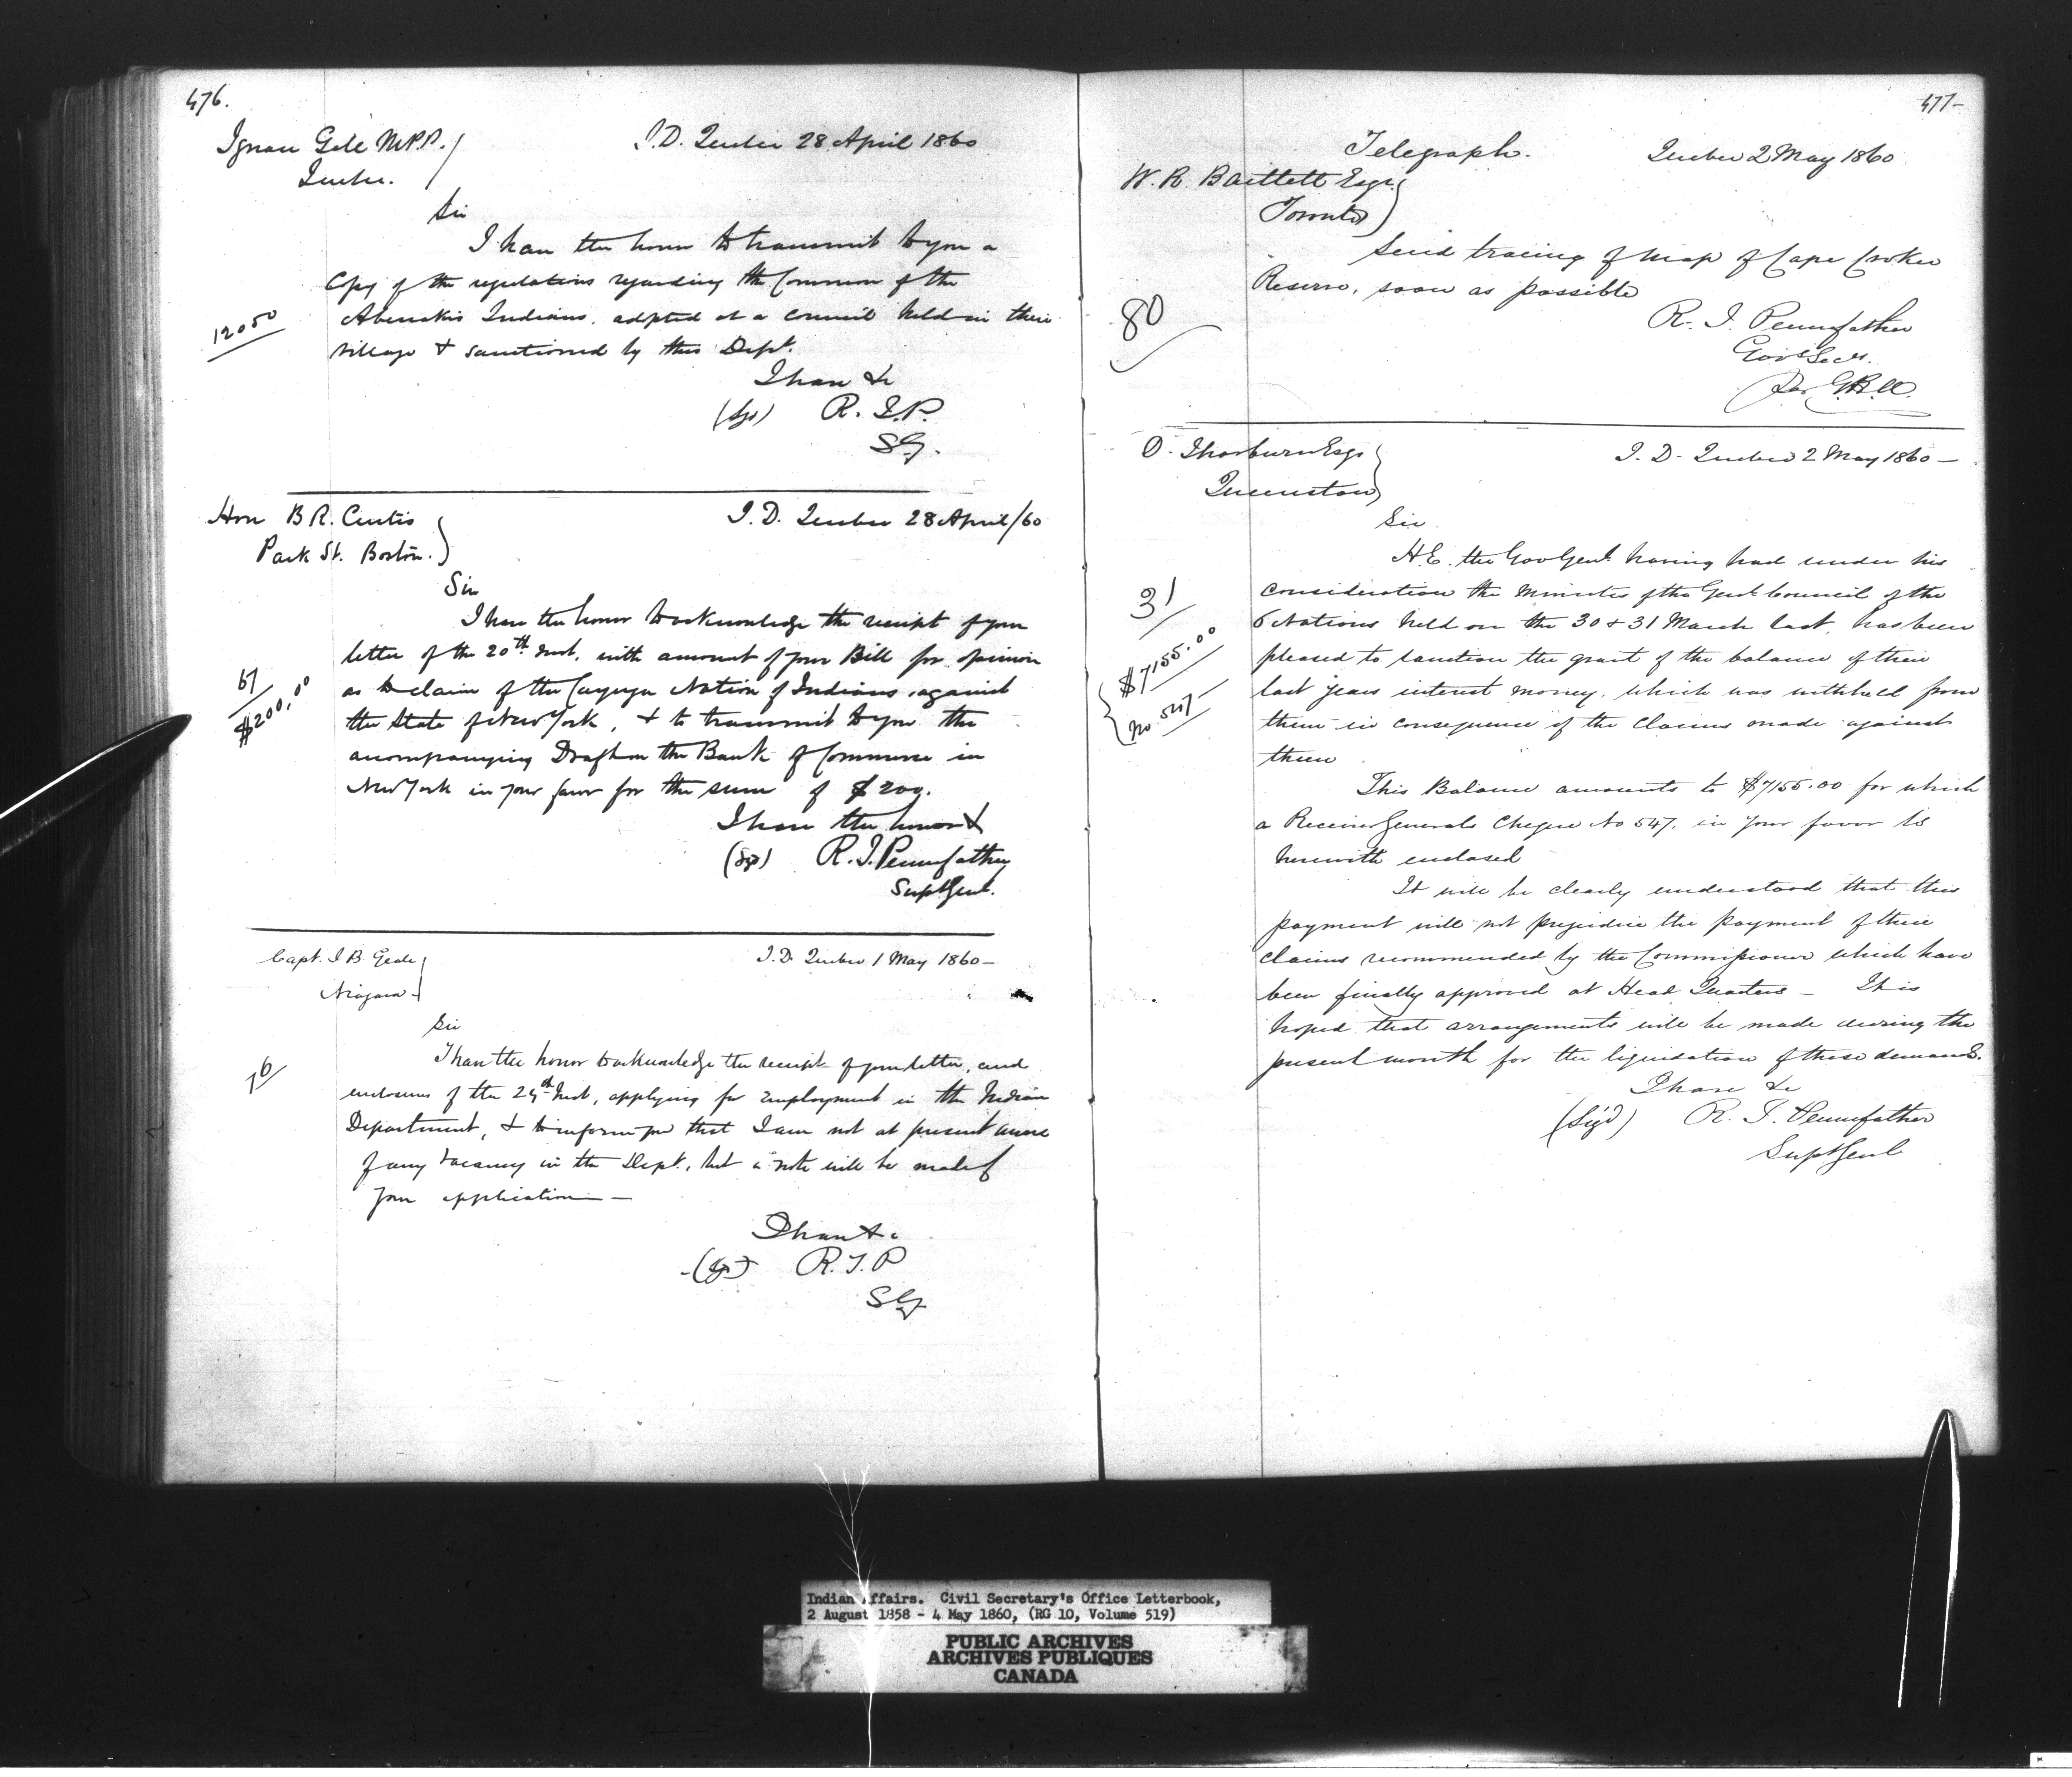 476.
Ignace Gill M.P.P.
Quebec.
I.D. Quebec 28 April 1860
Sir
I have the honor to transmit to you a
Copy of the regulations regarding the Common of the
Abenakis Indians, adopted at a Council held in their
village & sanctioned by this Dept.
12050
I have &c
(Sgd) R. T. P.
S.G.
Hon B R. Curtis
Park St. Boston.
I. D. Quebec 28 April/60
Sir
I have the honor to acknowledge the receipt of your
letter of the 20th inst, with amount of your Bill for opinion
as to claim of the Cayuga Nation of Indians against
the State of New York, & to transmit to you the
accompanying Draft on the Bank of Commerce in
New York in your favor for the sum of $200.
67
$200.00
I have the honor &
(Sgd) R. T. Pennefather
Supt Genl.
Capt. J. B. Geale
Niagara
I. D. Quebec 1 May 1860-
Sir
I have the honor to acknowledge the receipt of your letter, and
enclosures of the 29th inst, applying for employment in the Indian
Department, & to inform you that I am not at present aware
of any vacancy in the Dept., but a note will be made of
your application —
76
I have &c
(Sgd) R. T. P
S G
477-
Telegraph.
Quebec 2 May 1860
W. R. Bartlett Esqr.
Toronto
Send tracing of map of Cape Croker
Reserve, soon as possible
80
R. T. Pennefather
Govr Secy.
Per
D. Thorburn Esqr
Queenston
I. D. Quebec 2 May 1860 —
Sir
H.E. the Gov Genl. having had under his
consideration the Minutes of the Genl Council of the
6 Nations held on the 30 & 31 March last, has been
pleased to sanction the grant of the balance of their
last years interest money, which was withheld from
them in consequence of the Claims made against
them
31
$7155.00
No 547
This Balance amounts to $7155.00 for which
a Receiver Generals Cheque No 547. in your favor is
herewith enclosed
It will be clearly understood that this
payment will not prejudice the payment of those
claims recommended by the Commissioner which have
been finally approved at Head Quarters — It is
hoped that arrangements will be made during the
present month for the liquidation of these demands.
I have &c
(Sig'd) R. T. Pennefather
Supt Genl
Indian Affairs. Civil Secretary's Office Letterbook,
2 August 1858 - 4 May 1860, (RG 10, Volume 519)
PUBLIC ARCHIVES
ARCHIVES PUBLIQUES
CANADA